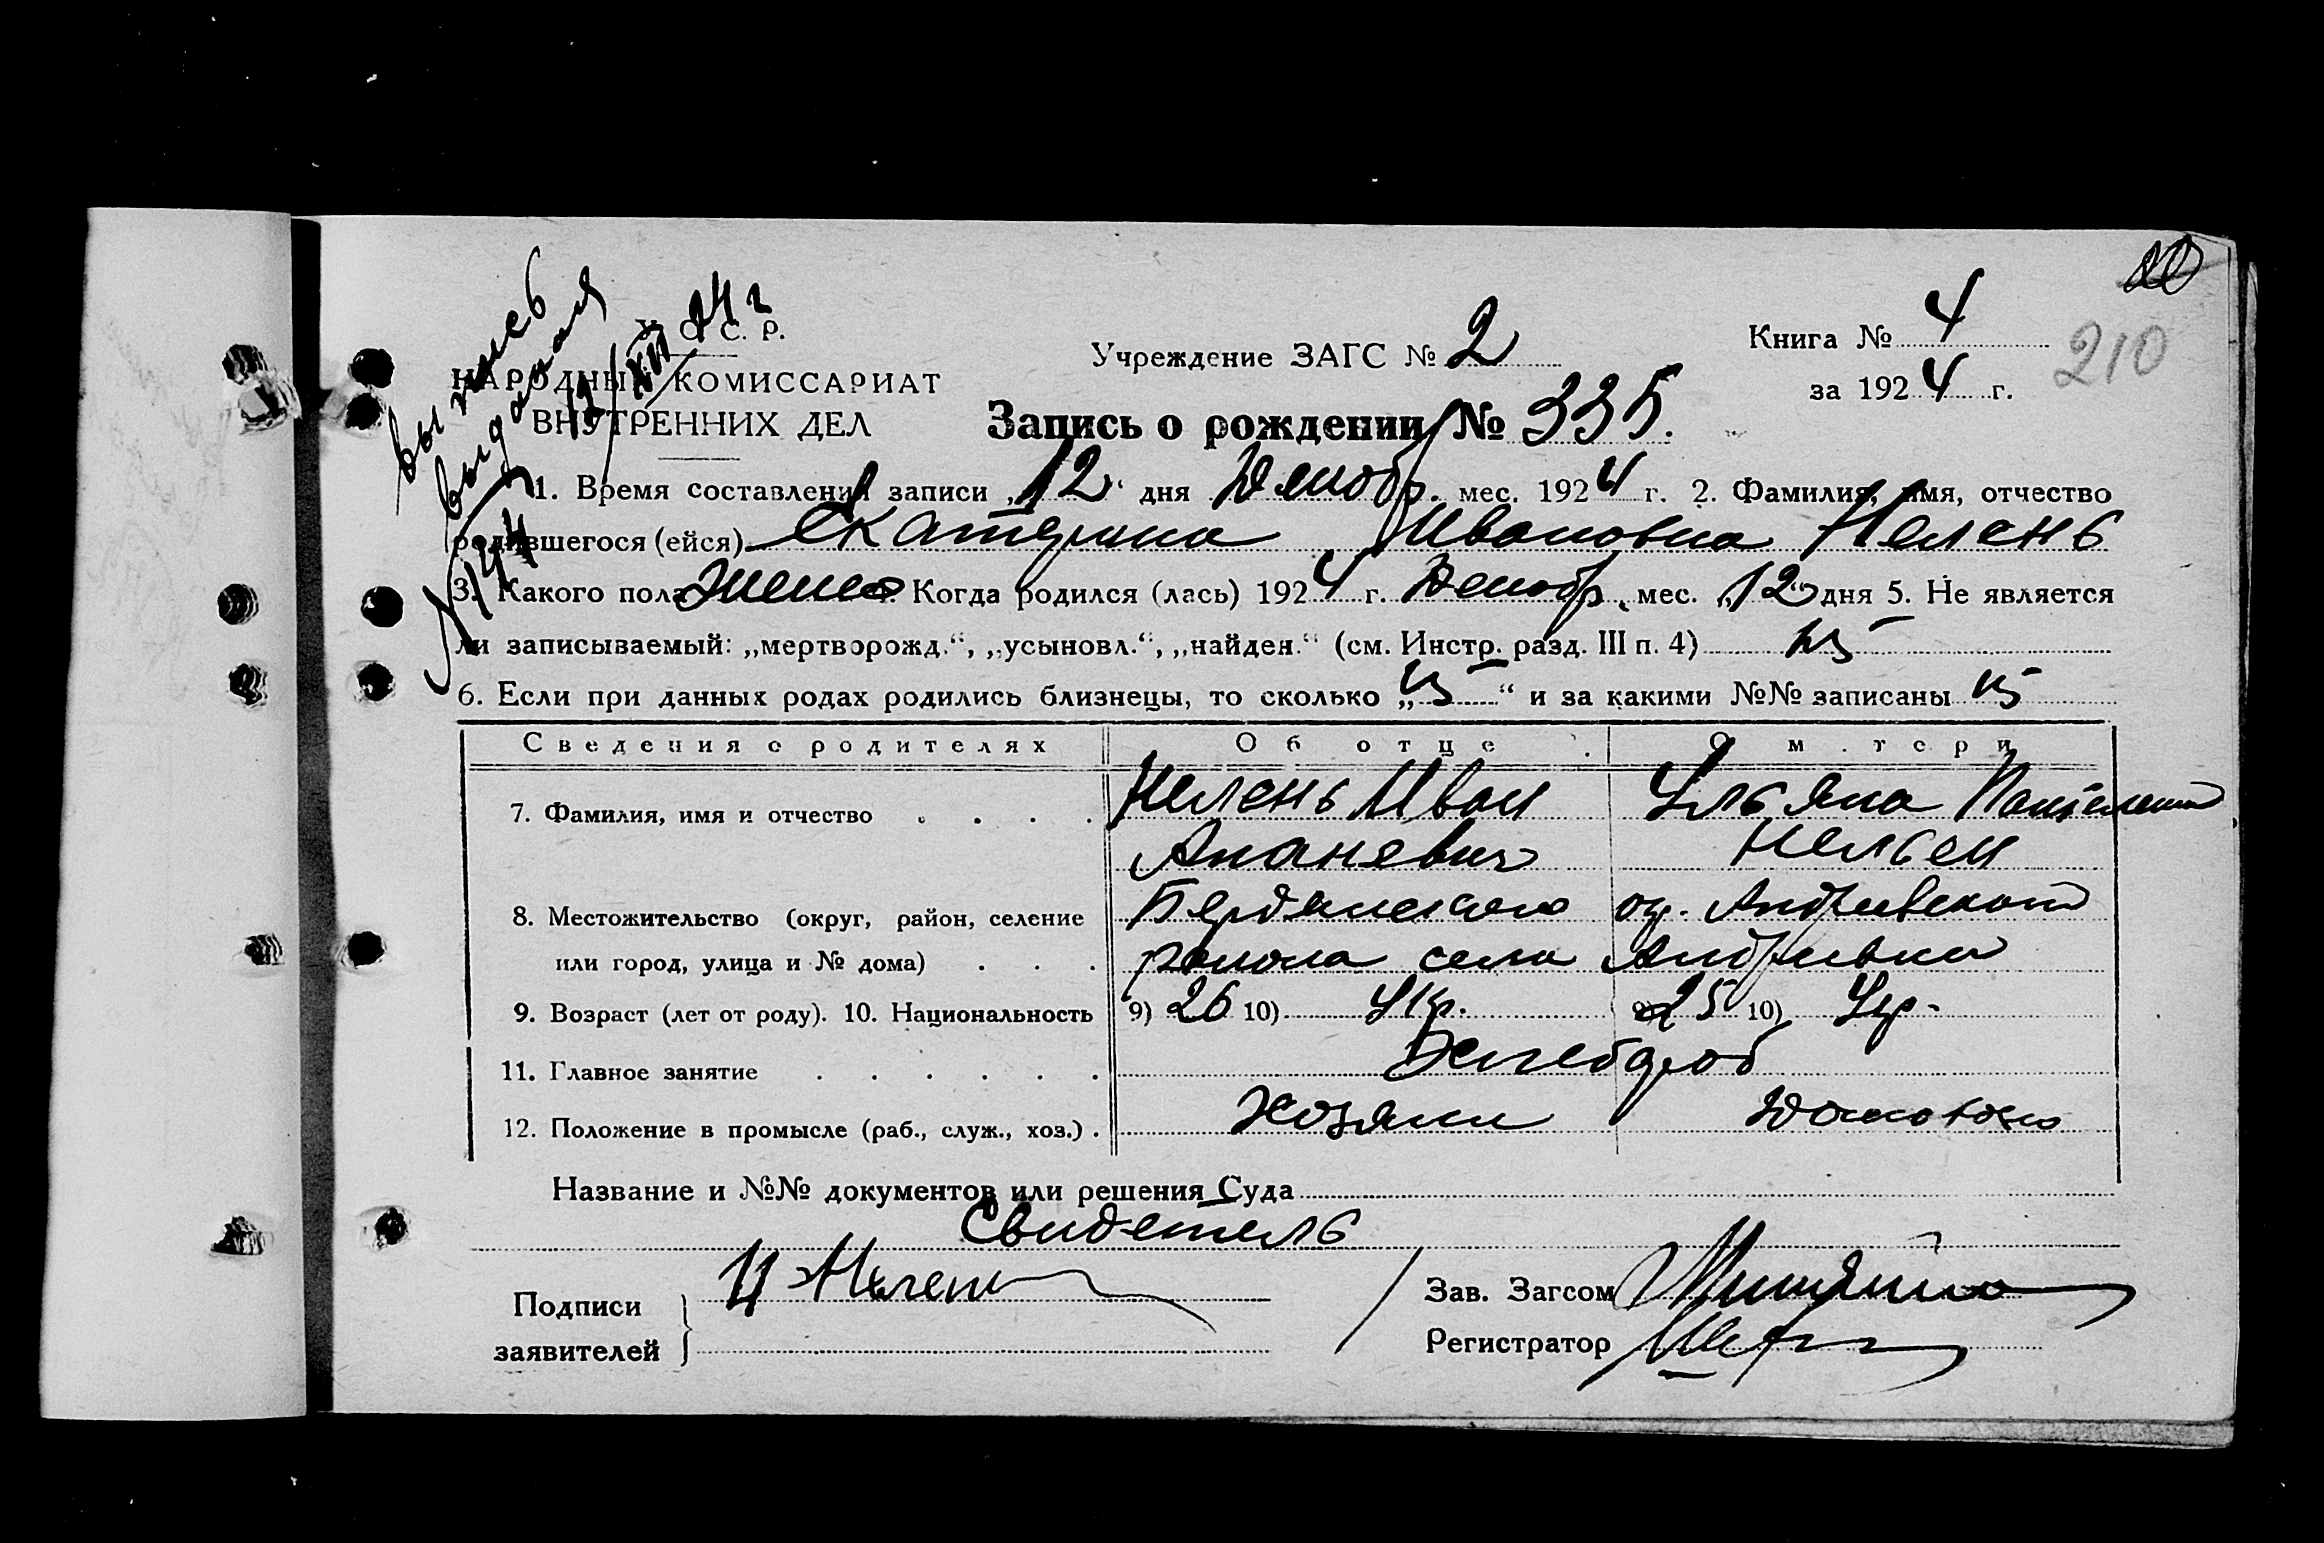 выпись
выданая
12/XII 24 г
№ 144
У. С. С. Р.
НАРОДНЫЙ КОМИССАРИАТ
ВНУТРЕННИХ ДЕЛ
Учреждение ЗАГС № 2
Книга № 4
за 1924 г.
210
Запись о рождении № 335.
1. Время составления записи „12“ дня Декабр. мес. 1924 г. 2. Фамилия, имя, отчество
родившегося (ейся) Екатерина Ивановна Нелень
3. Какого пола женс 4. Когда родился (лась) 1924 г. Декабр. мес. „12“ дня 5. Не является
ли записываемый: „мертворожд.“, „усыновл.“, „найден.“ (см. Инстр. разд. III п. 4)
6. Если при данных родах родились близнецы, то сколько „ “ и за какими №№ записаны
Сведения о родителях Об отце О матери
7. Фамилия, имя и отчество . . . . Нелень Иван Ульяна
Ананевич Нельен
8. Местожительство (округ, район, селение Бердянского ок. Андреевского
или город, улица и № дома) . . . района села Андреевки
9. Возраст (лет от роду). 10. Национальность 9) 26 10) Укр. 9) 25 10) Укр.
11. Главное занятие . . . . . . Хлебороб
12. Положение в промысле (раб., служ., хоз.) . Хозяин Домохоз
Название и №№ документов или решения Суда
Свидетель
Подписи И Нелень Зав. Загсом
заявителей Регистратор